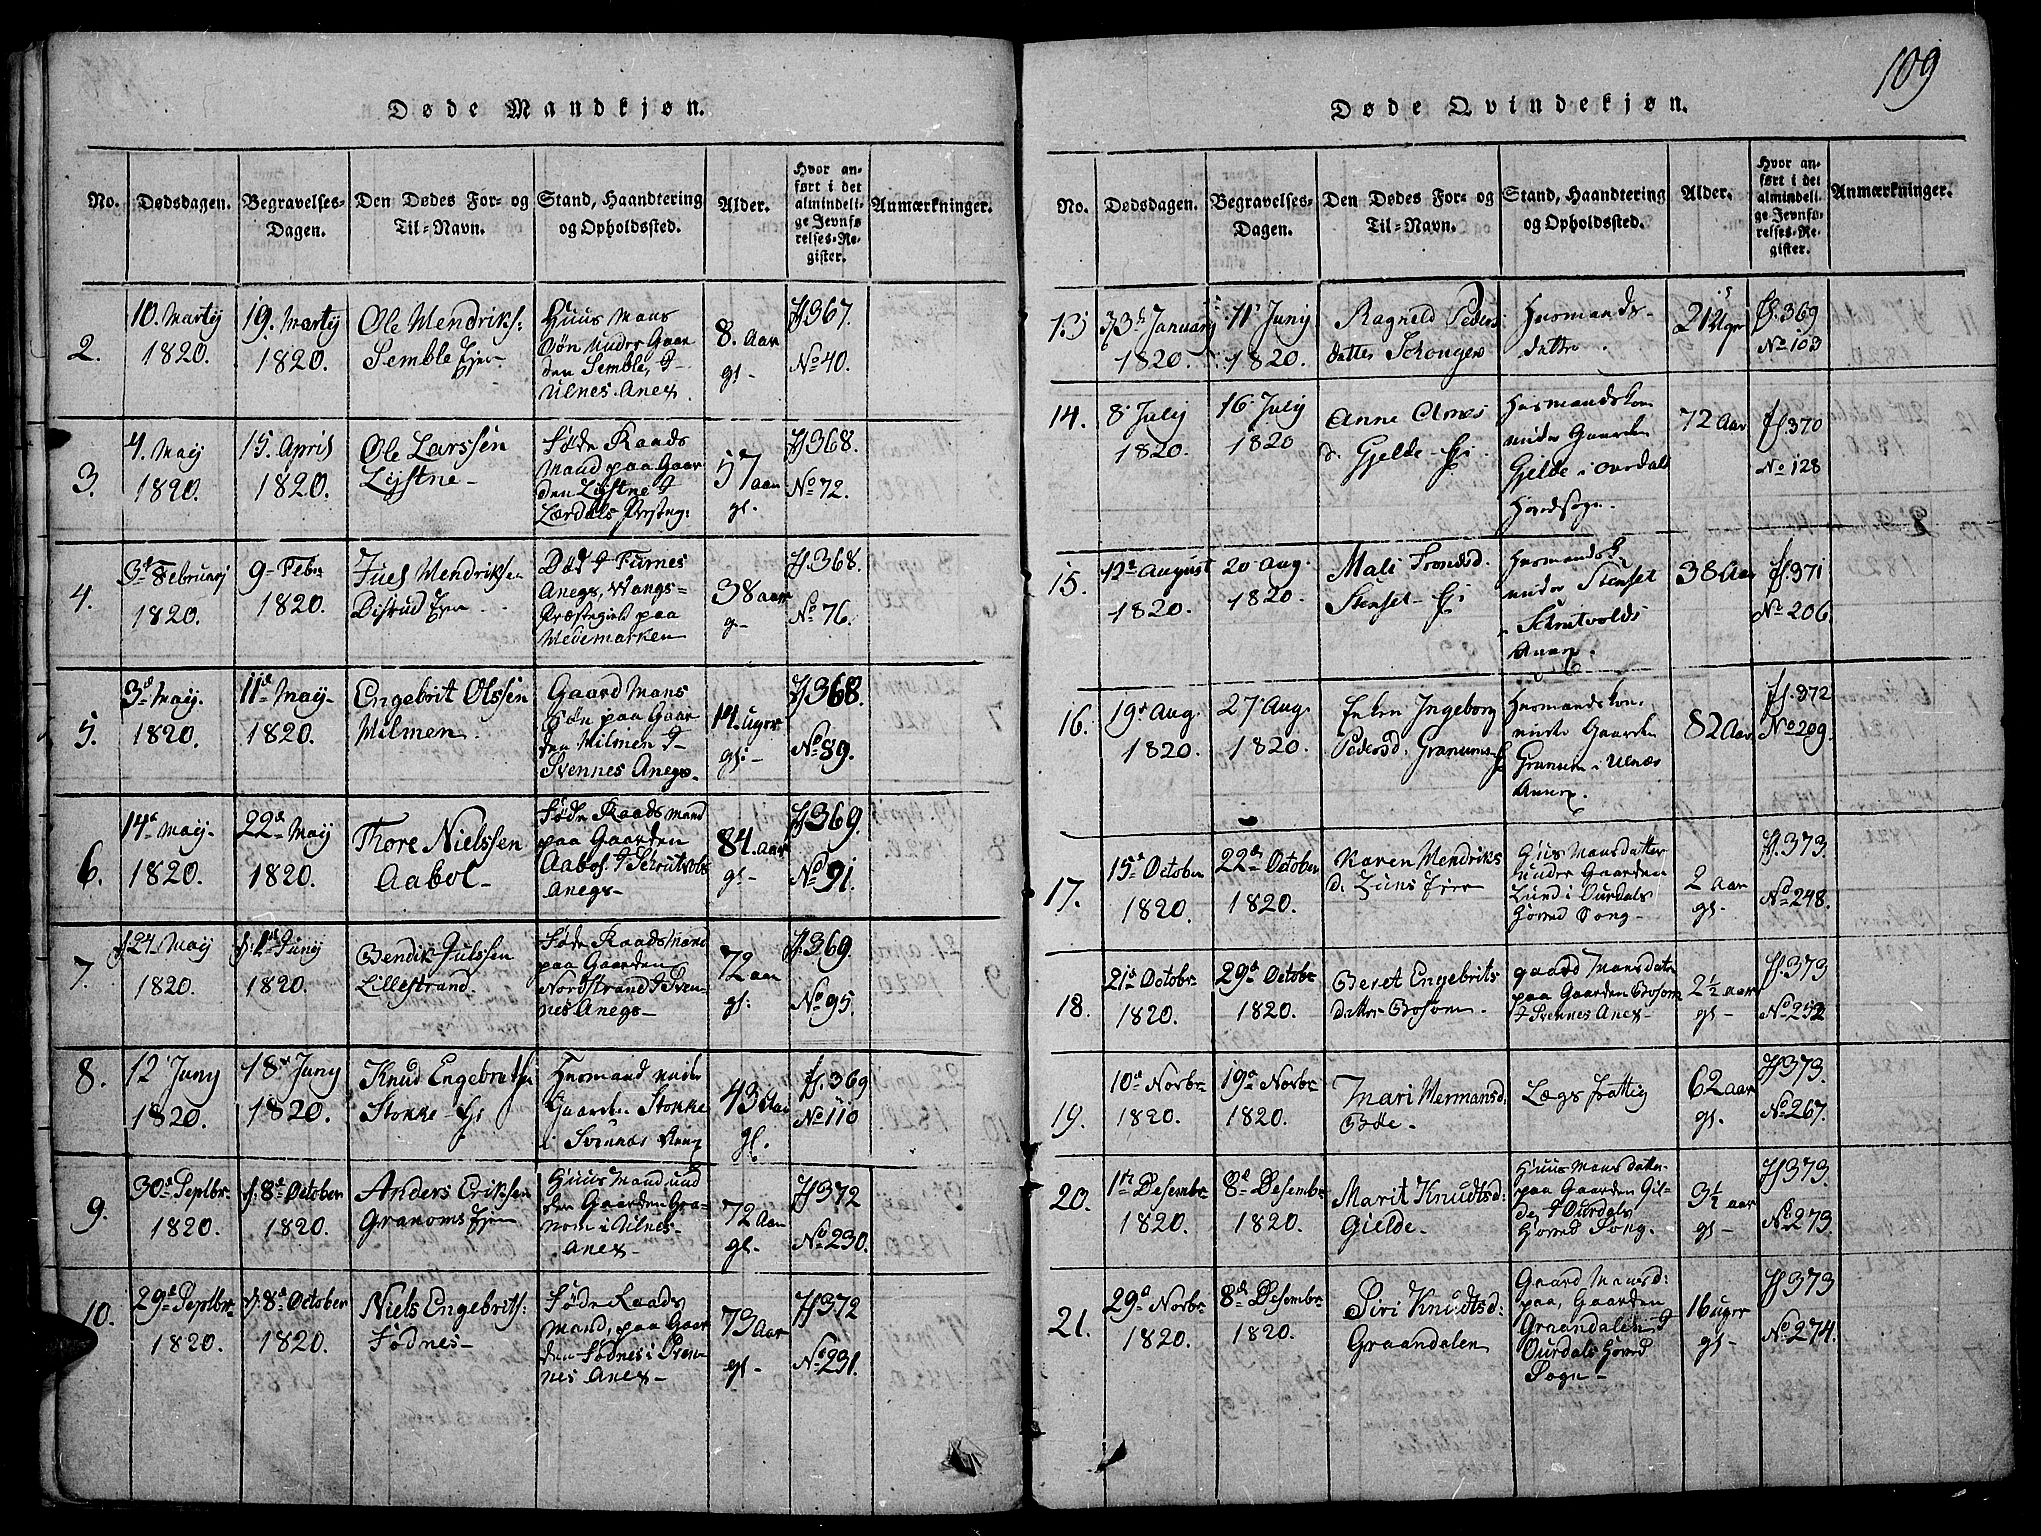 109
Døde Mandkjøn.
No. Dødsdagen. Begravelses-Dagen. Den Dødes For- og Til-Navn. Stand, Haandtering og Opholdssted. Alder. Hvor anført i det almindelige Jevnførelses-Register. Anmærkninger.
2. 10. Martij 1820. 19. Martij 1820. Ole Hendriks: Semble Eje- Huus Mans Søn Under Gaarden Semble, Ulnes Anex 8. Aar gl- 367. No 40.
3. 4. Maij 1820. 15. April 1820. Ole Larssen Lystne- Føde Raads Mand paa Gaarden Lystne Lærdals Prsteg: 57 aar gl. 368. No 72.
4. 3d Februarij 1820. 9- Febr 1820. Juel Hendriksen Død Furnes Anegs, Vangs= Præstegield paa Hedemarken 38 aar g- 368. No 76.
5. 3d Maij. 1820. 11d Maij- 1820. Engebrit Olssen Hilmen. Gaard Mans Søn paa Gaarden Hilmen Svennes Anegs. 14. uger gl:- 368. No 89.
6. 14d Maij- 1820. 22d Maij 1820. Thore Nielssen Aabol- Føde Raads mand paa Gaarden Aabol Anegs- 84. aar gl- 369. No 91.
7. 24. Maij 1820. 1ste Junij 1820. Bendik Julssen Lillestrand. Føde Raads Mand paa Gaarden Nordstrand Svennes Anegs- 72 aar gl. 369. No 95.
8. 12' Juny 1820. 18d Juny 1820. Knud Engebrets: Stokke Ej Huusmand under Gaarden Stokke i Svennæs Anex 43 Aar gl. 369 No 110
9. 30d Septbr. 1820. 8d October 1820. Anders Eriksen Granoms Ejer Huus Mand und den Gaarden Granom i Ulnes- Anex- 72 Aar gl- 372 No 230.
10. 29d Septbr. 1820. 8d October 1820. Niels Engebrits: Fødnes- Føde Raads Mand, paa Gaarden Fødnes i Svennes Anex- 73 Aar gl- 372 No 231.
Døde Qvindekjøn.
No. Dødsdagen. Begravelses-Dagen. Den Dødes For- og Til-Navn. Stand, Haandtering og Opholdssted. Alder. Hvor anført i det almindelige Jevnførelses-Register. Anmærkninger.
13 January 1820. 11' Junij 1820. Ragnild Peders datter Huusmands- datter. 21 369 No 103
14. 8' July 1820. 16' July 1820 Anne Arnes d. Gjelde Ej. Huusmandskone under Gaarden Gjelde i Ourdals Hovedsogn. 72 Aar 370 No 128
15. 12d August 1820. 20 Aug. 1820. Mali Trondsd. Stenset- Ej Huusmandsk. under Stenset Annex. 38 Aar 371 No 206.
16. 19d Aug. 1820. 27' Aug. 1820. Enken Ingeborg Pedersd. Granums Huusmandskone, under Gaarden Granum i Ulnæs Annex. 82 Aar 372 No 209.
17. 15d October 1820. 22d October 1820. Karen Hendriks d. Lunds Ejer Huus Mansdatter Under Gaarden Lund i Ourdals Hoved Sogn- 2 aar gl- 373. No 248.
18. 21d Octobr. 1820. 29d Octobr 1820. Beret Engebrits datter Bosom- gaard Mansdater paa Gaarden Bosom Svennes Anex- 2½ aar gl- 373 No 252
19. 10d Novbr 1820. 19d Novbr 1820. Mari Hermansd: Bøe- Lægs fattig 62 aar gl. 373. No 267.
20. 1ste Desembr 1820. 8d Desembr 1820. Marit Knudtsd: Gielde- Huus Mansdatter paa Gaarden Gilde, Ourdals Hoved Song. 3½ aar gl- 373. No 273.
21. 29d Novbr 1820. 8d Desembr 1820. Siri Knudtsd: Graandalen Gaard Mansd: paa, Gaarden Graandalen Ourdals Hoved Sogn- 16 uger gl- 373 No 274.